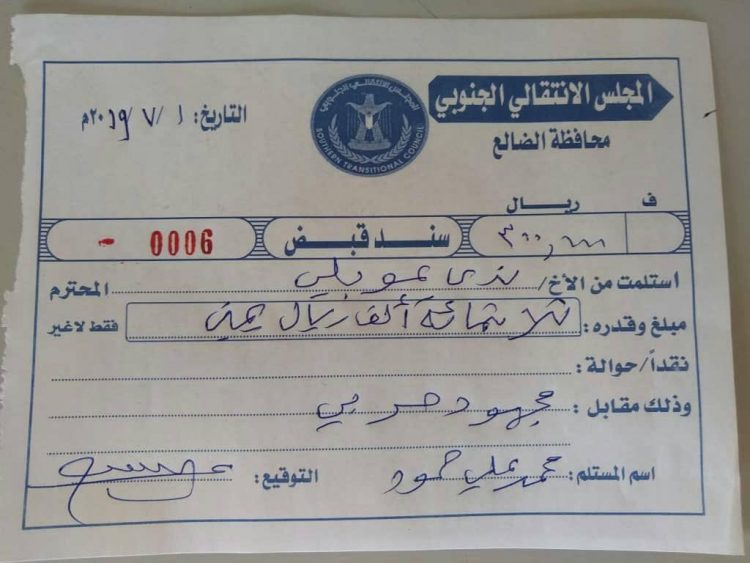 المجلس الانتقالي الجنوبي
محافظة الضالع
المجلس الانتقالي الجنوبي
SOUTHERN TRANSITIONAL COUNCIL
التاريخ: ١ / ٧ / ٢٠١٩م
ف ريال
٣٠٠,٠٠٠
سند قبض
0006 -
استلمت من الأخ/ المحترم
مبلغ وقدره: ثلاثمائة ألف ريال يمني فقط لاغير
نقداً/حوالة:
وذلك مقابل: مجهود حربي
اسم المستلم: محمد علي حمود التوقيع: